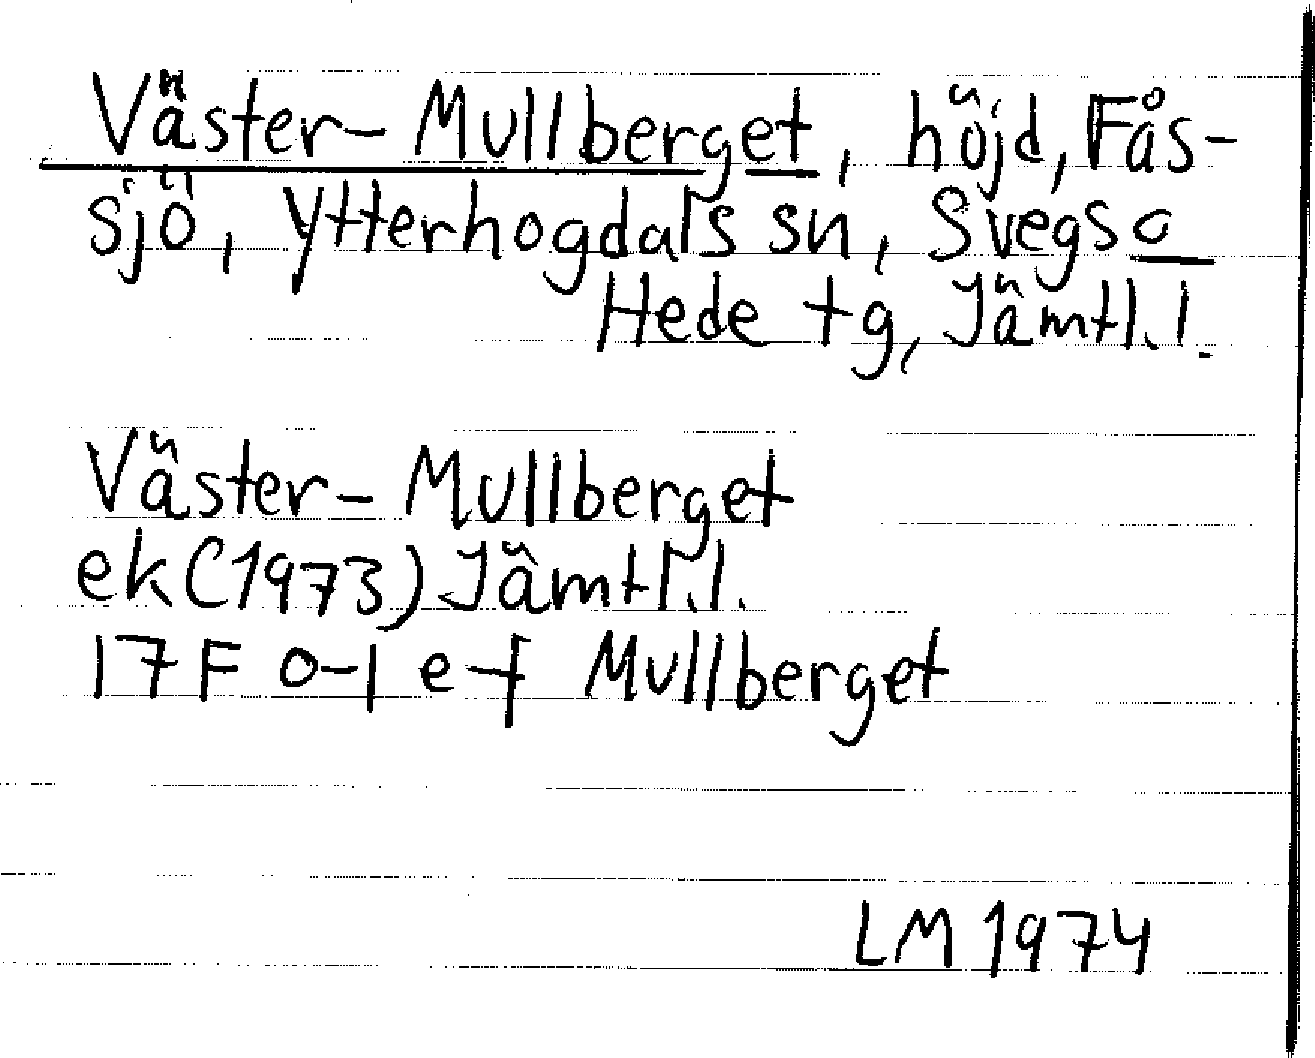 Väster-Mullberget, höjd, Fås-
sjö, Ytterhogdals sn, Svegs o
Hede tg, Jämtl.l.
Väster-Mullberget
ek(1973)Jämtl.l.
17F 0-1 e-f Mullberget
LM 1974